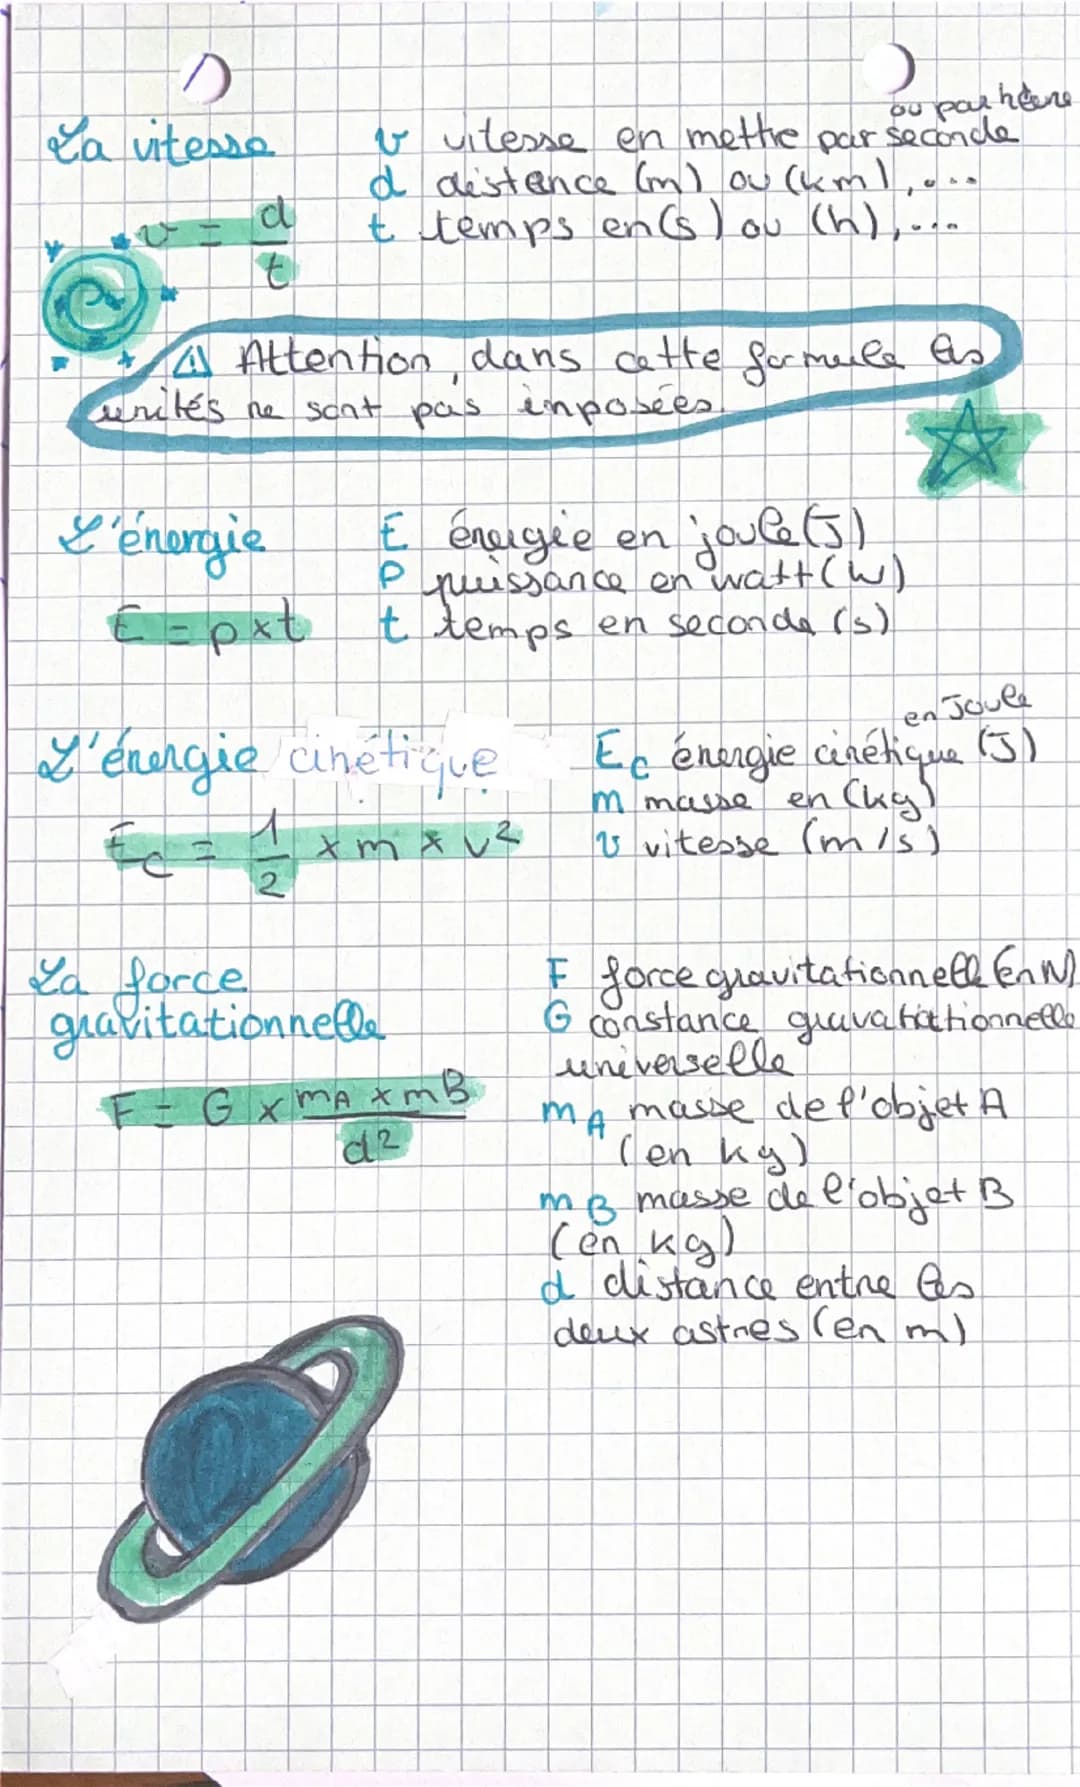 ou par heure
La vitesse
v vitesse en mettre par seconde
d distance (m) ou (km),...
v = d/t
t temps en (s) ou (h),...
⚠ Attention, dans cette formule les
unités ne sont pas imposées.
L'énergie
E énergie en joule (J)
P puissance en watt (W)
E = p x t
t temps en seconde (s)
en Joule
L'énergie cinétique
Ec énergie cinétique (J)
m masse en (kg)
Ec = 1/2 x m x v²
v vitesse (m/s)
La force
gravitationnelle
F = G x mA x mB / d²
F force gravitationnelle (en N)
G constance gravatiationnelle
universelle
mA masse de l'objet A
(en kg)
mB masse de l'objet B
(en kg)
d distance entre les
deux astres (en m)